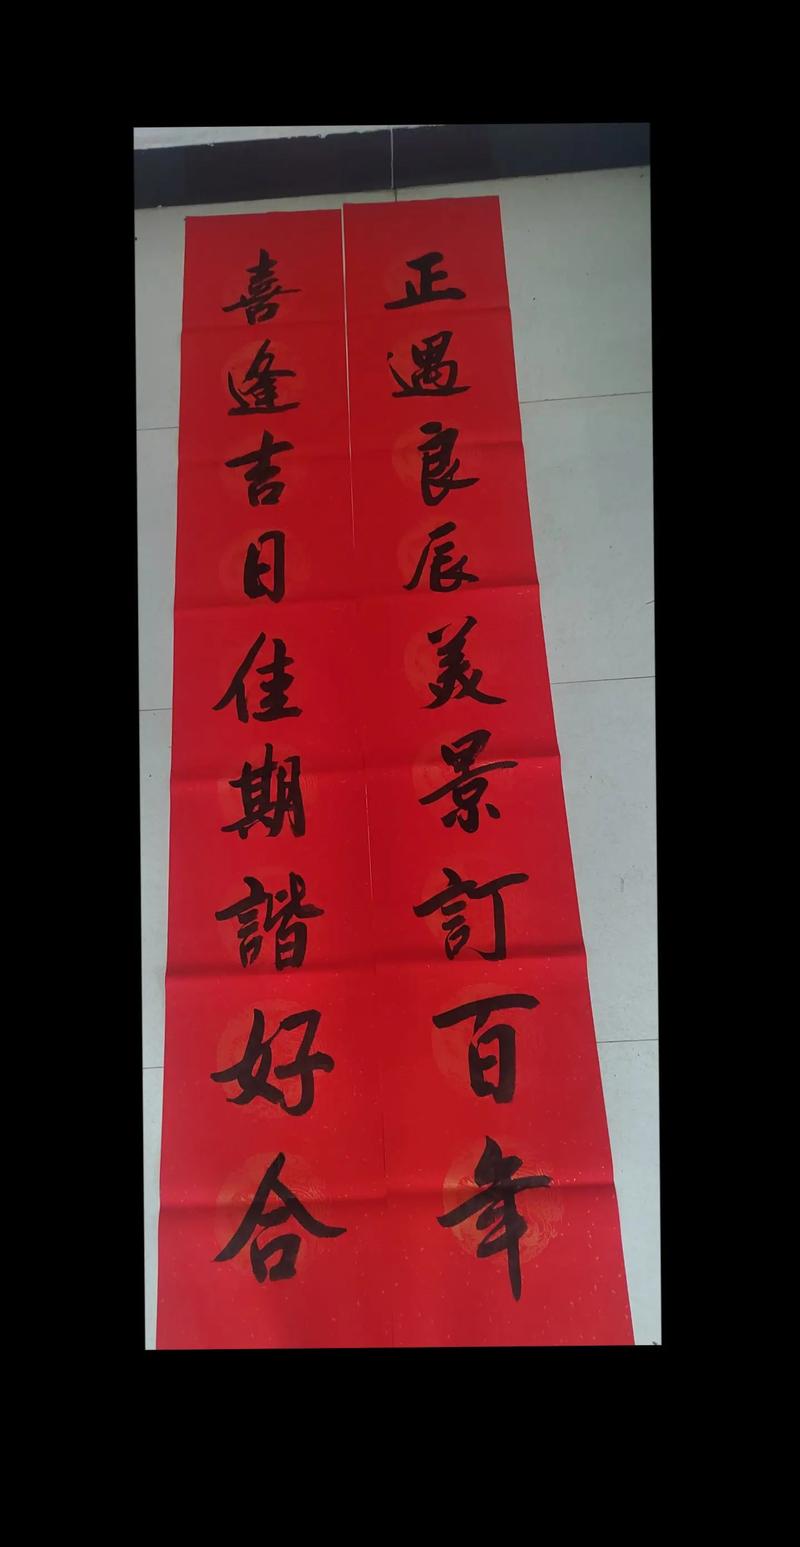 正遇良辰美景訂百年
喜逢吉日佳期諧好合